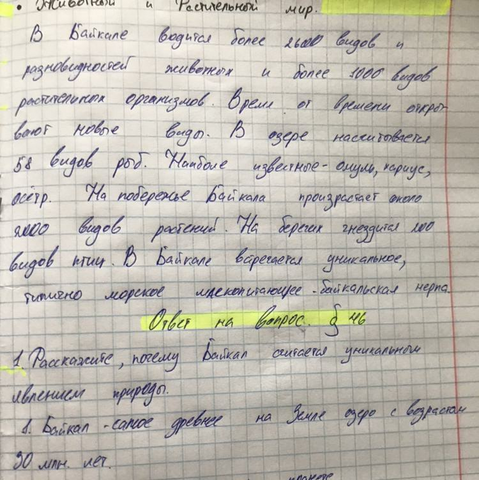 • Животный и Растительный мир.
В Байкале водится более 2600 видов и
разновидностей животных и более 1000 видов
растительных организмов. Время от времени откры-
вают новые виды. В озере насчитывается
58 видов рыб. Наиболе известные - омуль, хариус,
осётр. На побережье Байкала произрастает около
2000 видов растений. На берегах гнездится 200
видов птиц. В Байкале встречается уникальное,
типично морское млекопитающее - байкальская нерпа.
Ответ на вопрос. § 46
1. Расскажите, почему Байкал считается уникальным
явлением природы.
1. Байкал - самое древнее на Земле озеро с возрастом
30 млн. лет.
планете